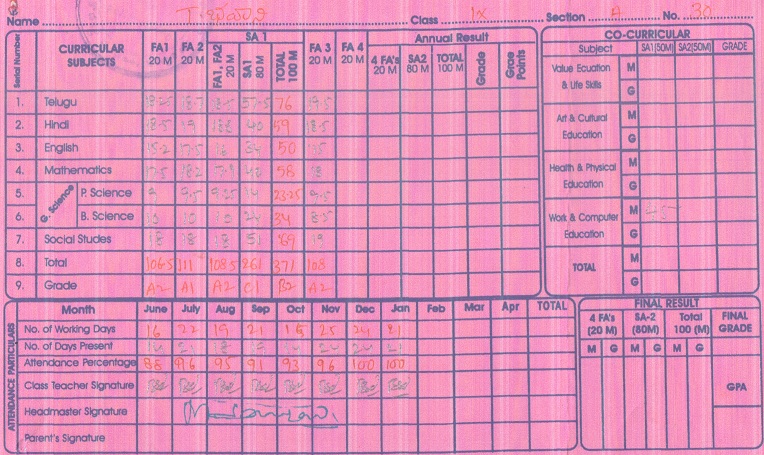 Name Class IX Section A No. 30
Serial Number CURRICULAR SUBJECTS FA1 20 M FA 2 20 M SA 1 FA1, FA2 20 M SA1 80 M TOTAL 100 M FA 3 20 M FA 4 20 M Annual Result 4 FA's 20 M SA2 80 M TOTAL 100 M Grade Grae Points
1. Telugu 18.5 76 19.5
2. Hindi 18.5 19 40 59 18.5
3. English 15.2 17.5 16 34 50 15
4. Mathematics 17.5 40 58 18
G. Science
5. P. Science 9 9.5 9.25 14 23.25 9.5
6. B. Science 10 10 10 24 34 8.5
7. Social Studes 18 18 18 51 69 19
8. Total 106.5 111 108.5 261 371 108
9. Grade A2 A1 A2 C1 B2 A2
CO-CURRICULAR
Subject SA1(50M) SA2(50M) GRADE
Value Ecuation & Life Skills M G
Art & Cultural Education M G
Health & Physical Education M G
Work & Computer Education M 45 G
TOTAL M G
ATTENDANCE PARTICULARS
Month June July Aug Sep Oct Nov Dec Jan Feb Mar Apr TOTAL
No. of Working Days 16 22 19 21 15 25 24 21
No. of Days Present
Attendance Percentage 88 96 95 91 93 96 100 100
Class Teacher Signature
Headmaster Signature
Parent's Signature
FINAL RESULT
4 FA's (20 M) SA-2 (80M) Total 100 (M) FINAL GRADE
M G M G M G
GPA